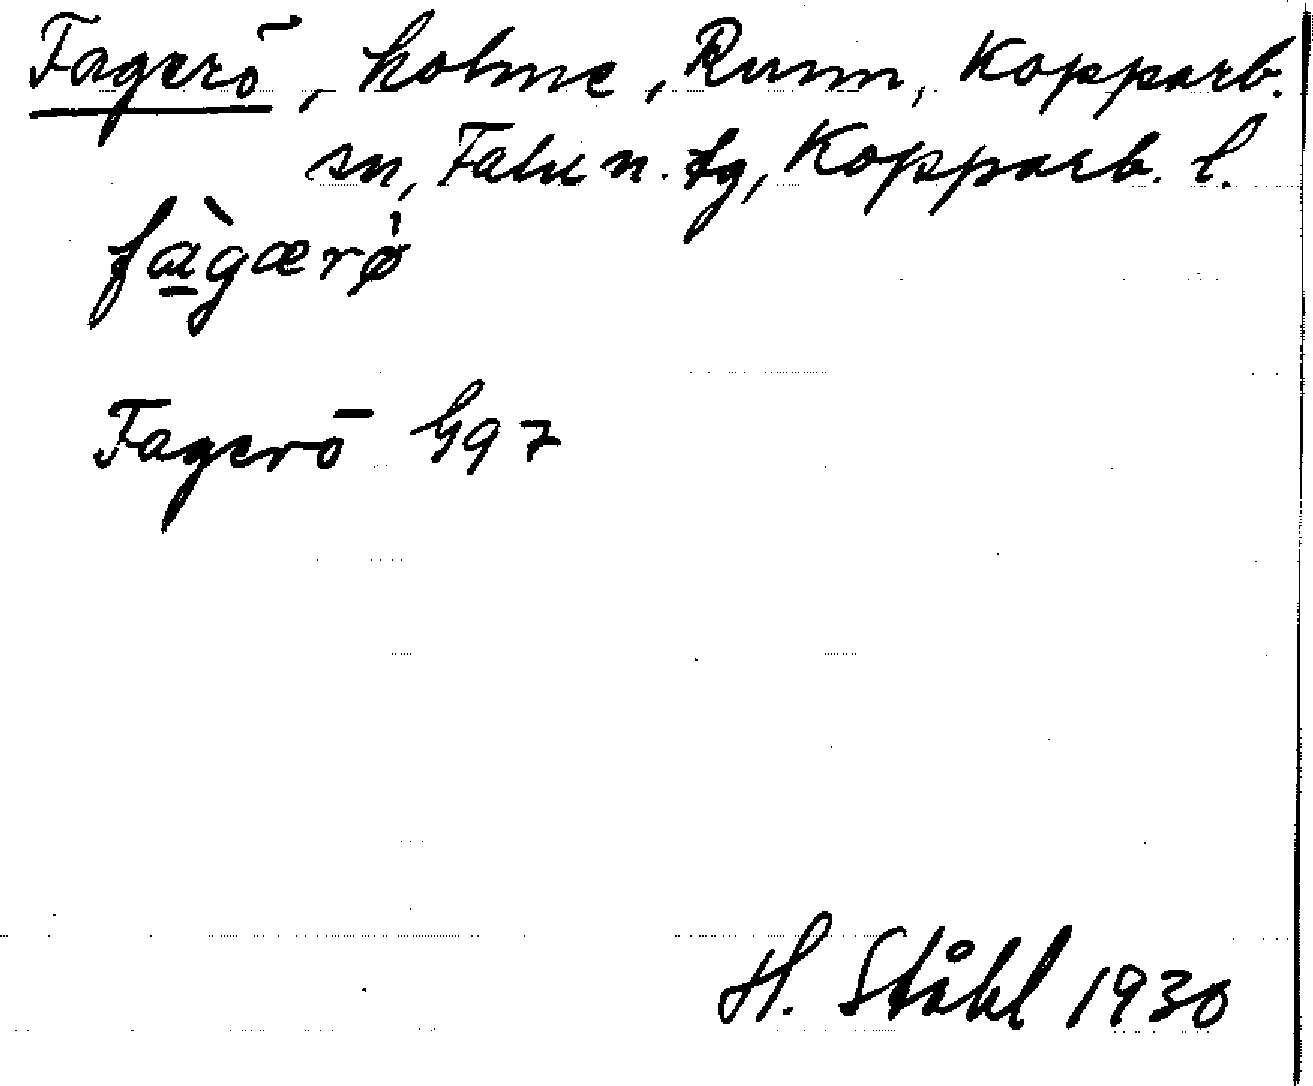 Fagerö, holme, Runn, Kopparb.
sn, Falu n. tg, Kopparb. l.
fàgærø̍
Fagerö Gg 7
H. Ståhl 1930